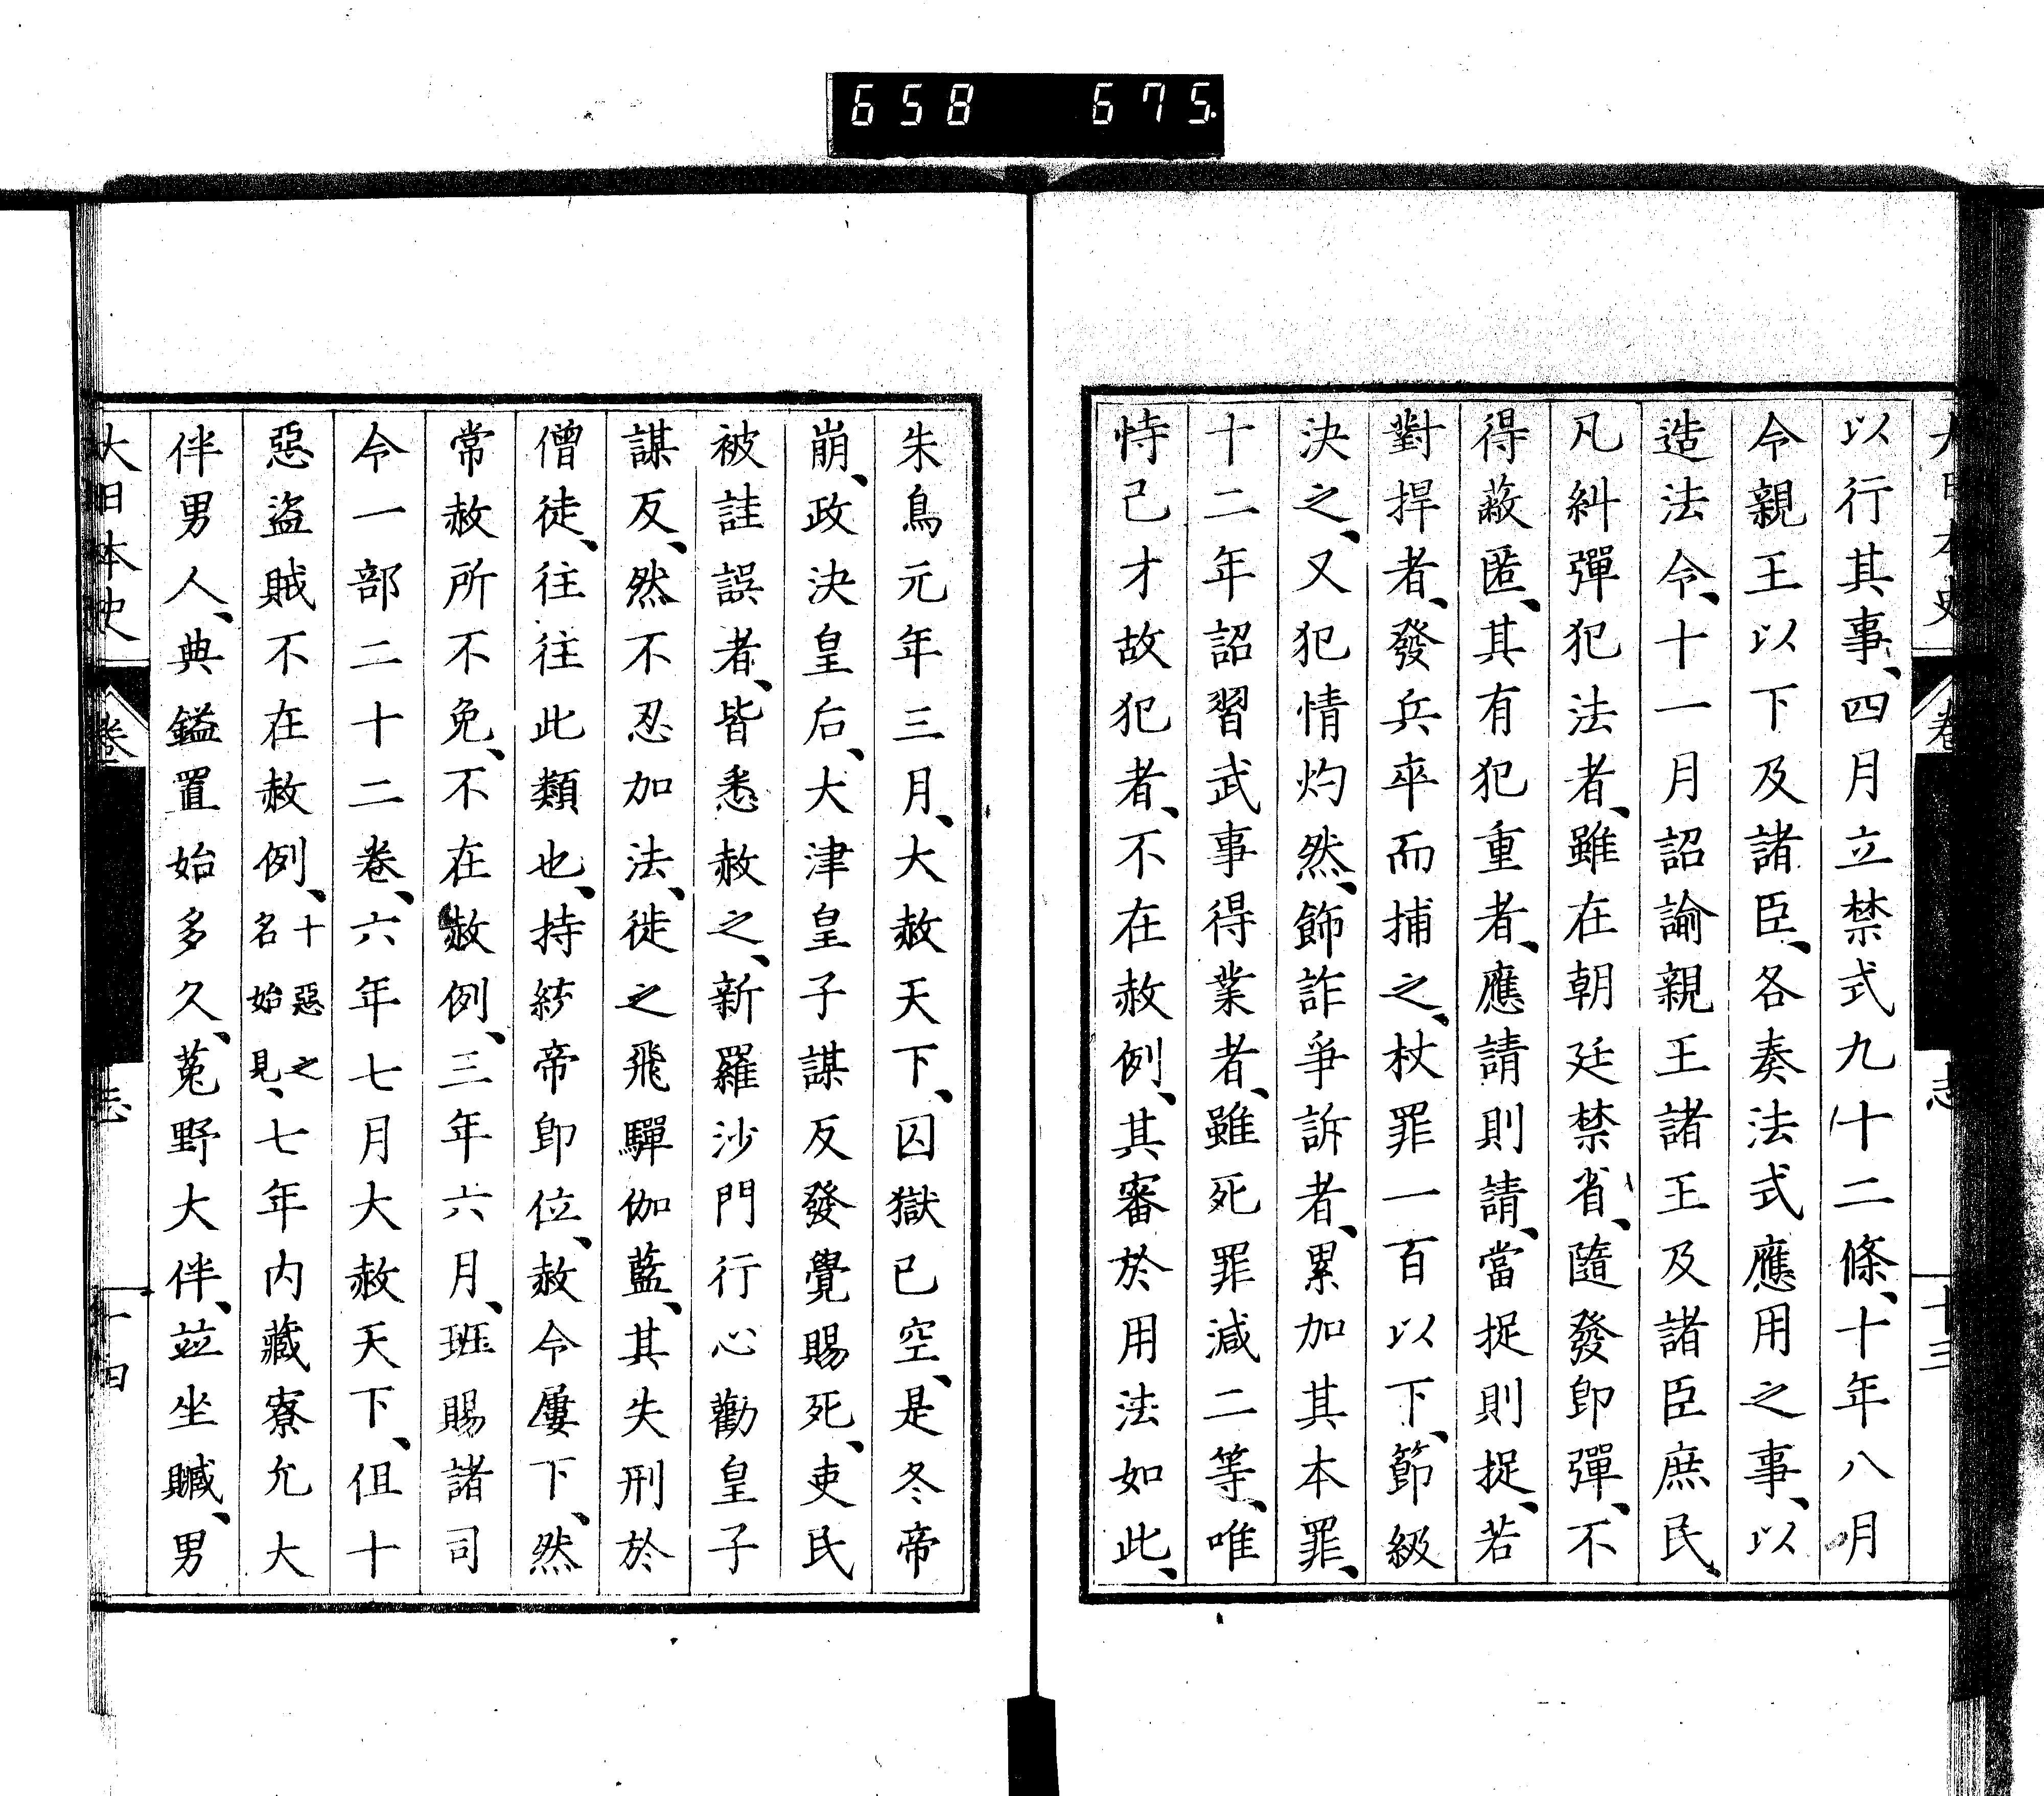 658 675
大日本史 卷 志 十三
以行其事、四月立禁式九十二條、十年八月
令親王以下及諸臣、各奏法式應用之事、以
造法令、十一月詔諭親王諸王及諸臣庶民、
凡糾彈犯法者、雖在朝廷禁省、隨發卽彈、不
得蔽匿、其有犯重者、應請則請、當捉則捉、若
對捍者、發兵卒而捕之、杖罪一百以下、節級
決之、又犯情灼然、飾詐爭訴者、累加其本罪、
十二年詔習武事得業者、雖死罪減二等、唯
恃己才故犯者、不在赦例、其審於用法如此、
朱鳥元年三月、大赦天下、囚獄已空、是冬帝
崩、政決皇后、大津皇子謀反發覺賜死、吏民
被詿誤者、皆悉赦之、新羅沙門行心勸皇子
謀反、然不忍加法、徙之飛驒伽藍、其失刑於
僧徒、往往此類也、持統帝卽位、赦令屢下、然
常赦所不免、不在赦例、三年六月、班賜諸司
令一部二十二卷、六年七月大赦天下、但十
惡盜賊不在赦例、十惡之名始見、七年內藏寮允大
伴男人、典鎰置始多久、菟野大伴、竝坐贓、男
大日本史 卷 志 十四